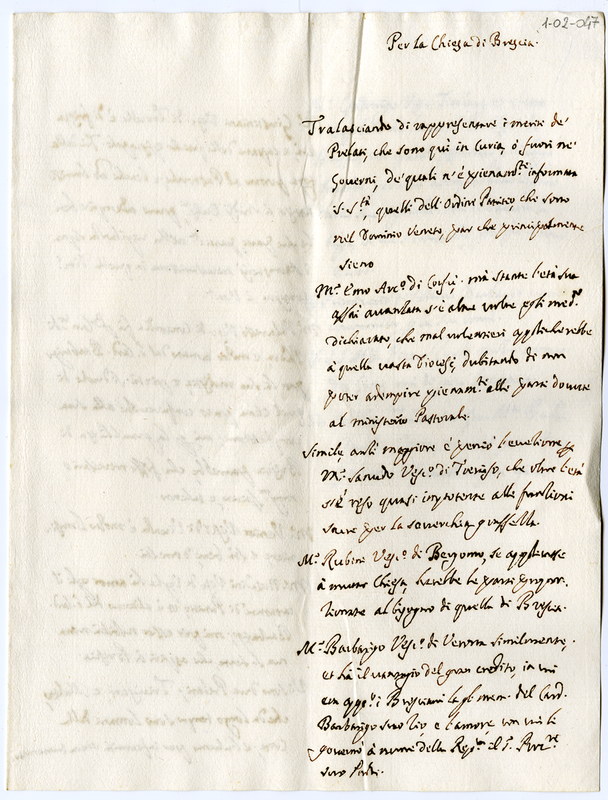 1-02-047
Per la Chiesa di Brescia.
Tralasciando di rappresentare i meriti de'
Prelati, che sono quì in Curia, ò fuori ne'
Governi, de' quali n'è pienam.te informata
S. S.tà, quelli dell'Ordine Patrizio, che sono
nel Dominio Veneto, par che principalmente
sieno
M.r Emo Arc.o di Corfù, mà stante l'età sua
assai avanzata s'è altre volte egli med.o
dichiarato, che mal volentieri applicherebbe
à quella vasta Diocesi, dubitando di non
poter adempire pienam.te alle parti dovute
al ministerio Pastorale.
Simile anzi maggiore è perciò l'eccezione
M.r Sanudo Vesc.o di Treviso, che oltre l'età
s'è reso quasi impotente alle funzioni
sacre per la soverchia grassezza.
M.r Rubini Vesc.o di Bergomo, se applicasse
à mutar Chiesa, harebbe le parti propor-
zionate al bisogno di quella di Brescia.
M.r Barbarigo Vesc.o di Verona similmente,
et hà il vantaggio del gran credito, in cui
è app.o i Bresciani la fel. mem. del Card.
Barbarigo suo Zio, e l'amore con cui li
governò à nome della Rep.ca il
suo Padre.